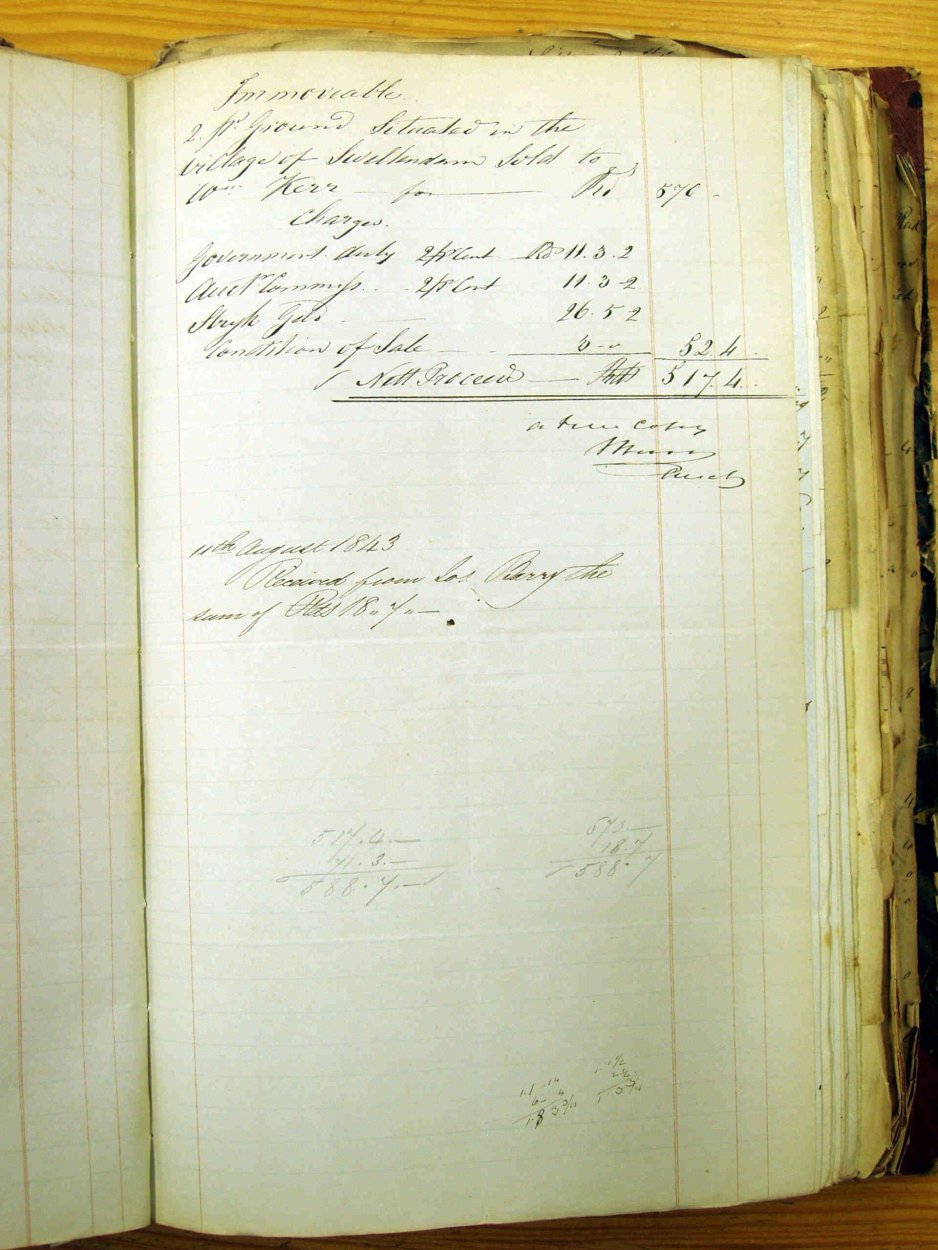 Immoveable.
2 ps Ground Situated in the
village of Swellendam Sold to
Wm Kerr — for — Rds 570 -
Charges.
Government duty 2 p Cent Rds 11.3.2
Auct Commiss. 2 p Cent 11.3-2
Stryk Geld 26.5 2
Condition of Sale 3 - " 52.4
Nett Proceed — Rds 517.4
a true Copy
Auct
11th August 1843
Received from Jos Barry the
sum of Rds 18 " 7 " —
517.4.— 
71.3.—
588.7.—
570.—
18.7
588.7